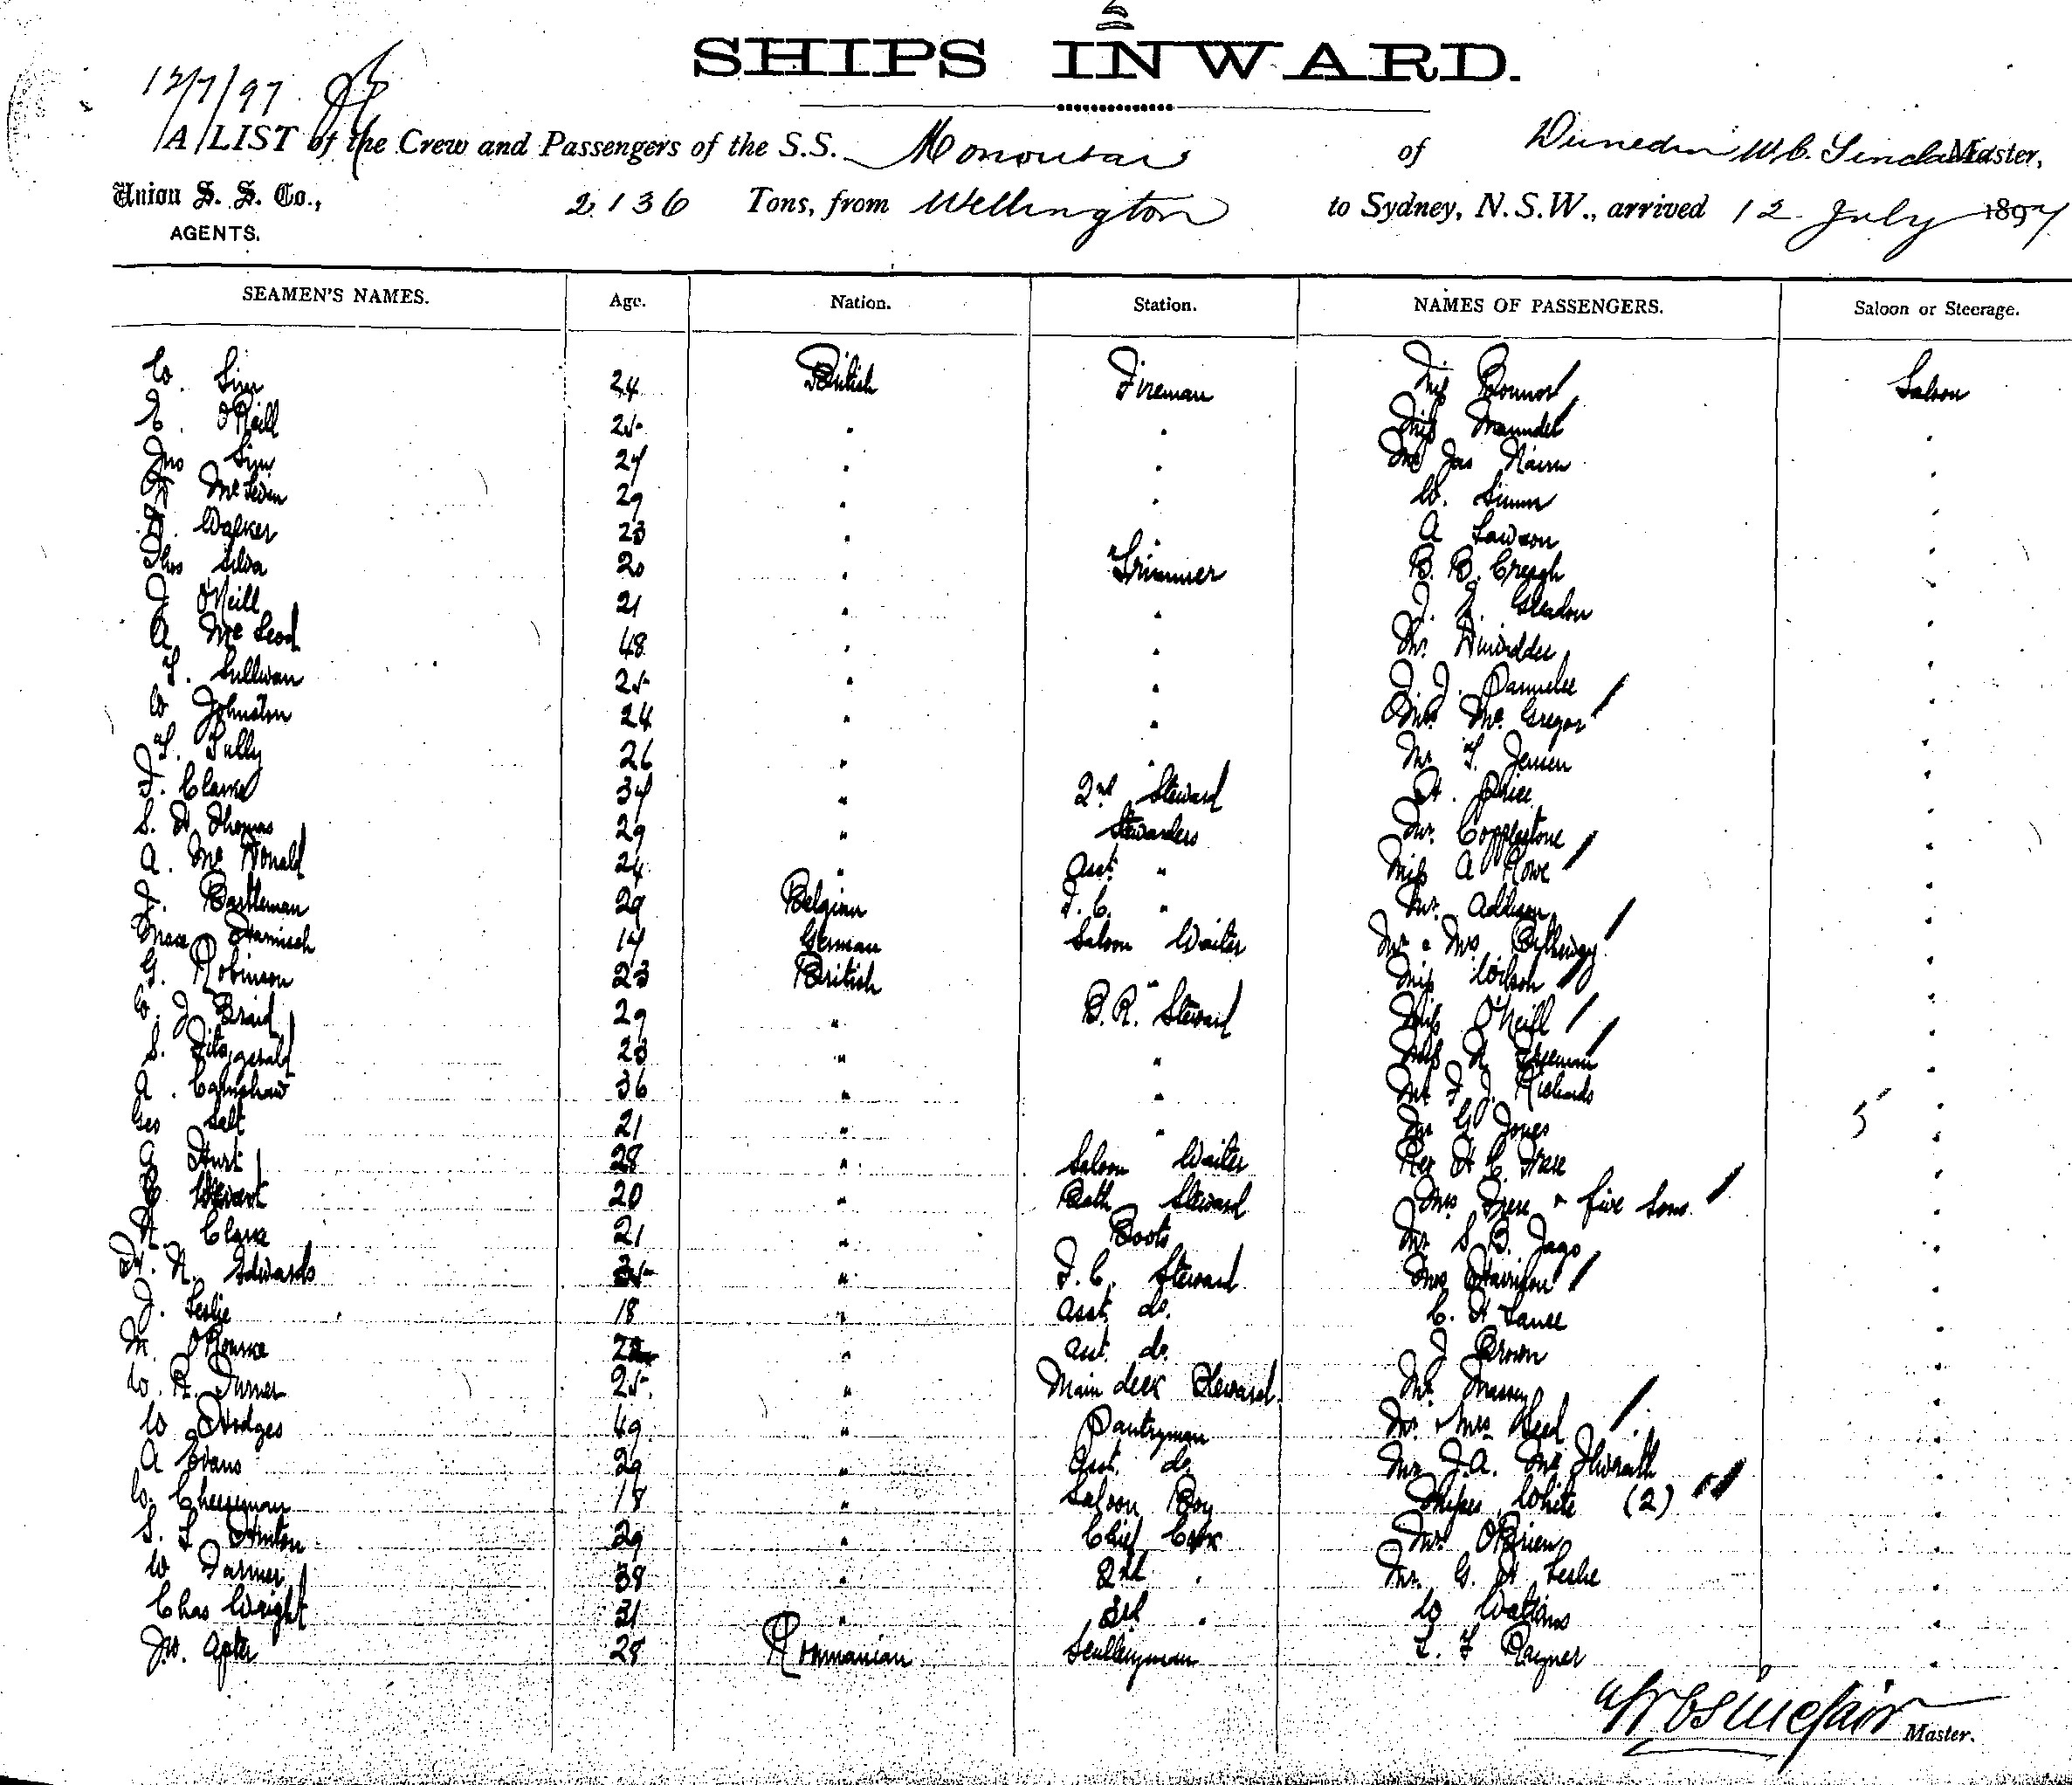 SHIPS INWARD.
12/7/97
A LIST of the Crew and Passengers of the S.S. Monowai of Dunedin W.C. Sinclair Master,
Union S. S. Co., 2136 Tons, from Wellington to Sydney, N.S.W., arrived 12 July 1897
AGENTS.
SEAMEN'S NAMES. Age. Nation. Station. NAMES OF PASSENGERS. Saloon or Steerage.
W. Sim 24 British Fireman Miss Saloon
E. O'Neill 25 " " Miss "
Jno Sim 27 " " Mr Jas Nairn "
29 " " W. Simm "
Walker 23 " " A Lawson "
Thos Silva 20 " Trimmer B. B. Creagh "
J O'Neill 21 " " J. "
A McLeod 48 " " Mr. "
T. Sullivan 25 " " J. J. "
W Johnston 24 " " McGregor "
T. Tully 26 " " Mr T. Jensen "
F. Clarke 37 " 2nd Steward H. Price "
S. H Thomas 29 " Stewardess Mr. Copplestone "
A. McDonald 24 " Asst " Miss A Rowe "
J. Bastleman 29 Belgian F. C. " Mr. Addison "
Max Harnisch 17 German Saloon Waiter Mr & Mrs Bytheway "
G. Robinson 23 British " Miss Wilson "
W. J Braid 29 " B.R. Steward Miss O'Neill "
S. Fitzgerald 23 " " Miss "
A. Earnshaw 36 " " Mr F J. Richards "
Geo Salt 21 " " Mr G Jones 5 "
A Hurt 28 " Saloon Waiter Rev H C Frere "
Stewart 20 " Bath Steward Mrs Frere & five sons "
H. Clark 21 " Boots Mr S B. Jago "
H. N. Edwards " F. C. Steward Mrs Harrison "
J. Leslie 18 " Asst. do. C. H Lance "
M. O'Rourke " Asst. do. J Brown "
W. H. Turner 25 " Main deck Steward Mr. Massey "
W Hodges 49 " Pantryman Mr. & Mrs Reed "
A Evans 29 " Asst. do. Mr J.A. McIlwraith "
W. Cheeseman 18 " Saloon Boy Misses White (2) "
S. L Hinton 29 " Chief Cook Mr O'Brien "
W Farmer 38 " 2nd " Mr. G. H Leslie "
Chas Wright 31 " 3rd " W Watkins "
Jno. Apter 28 Roumanian Sculleryman L. F Rayner "
W C Sinclair Master.